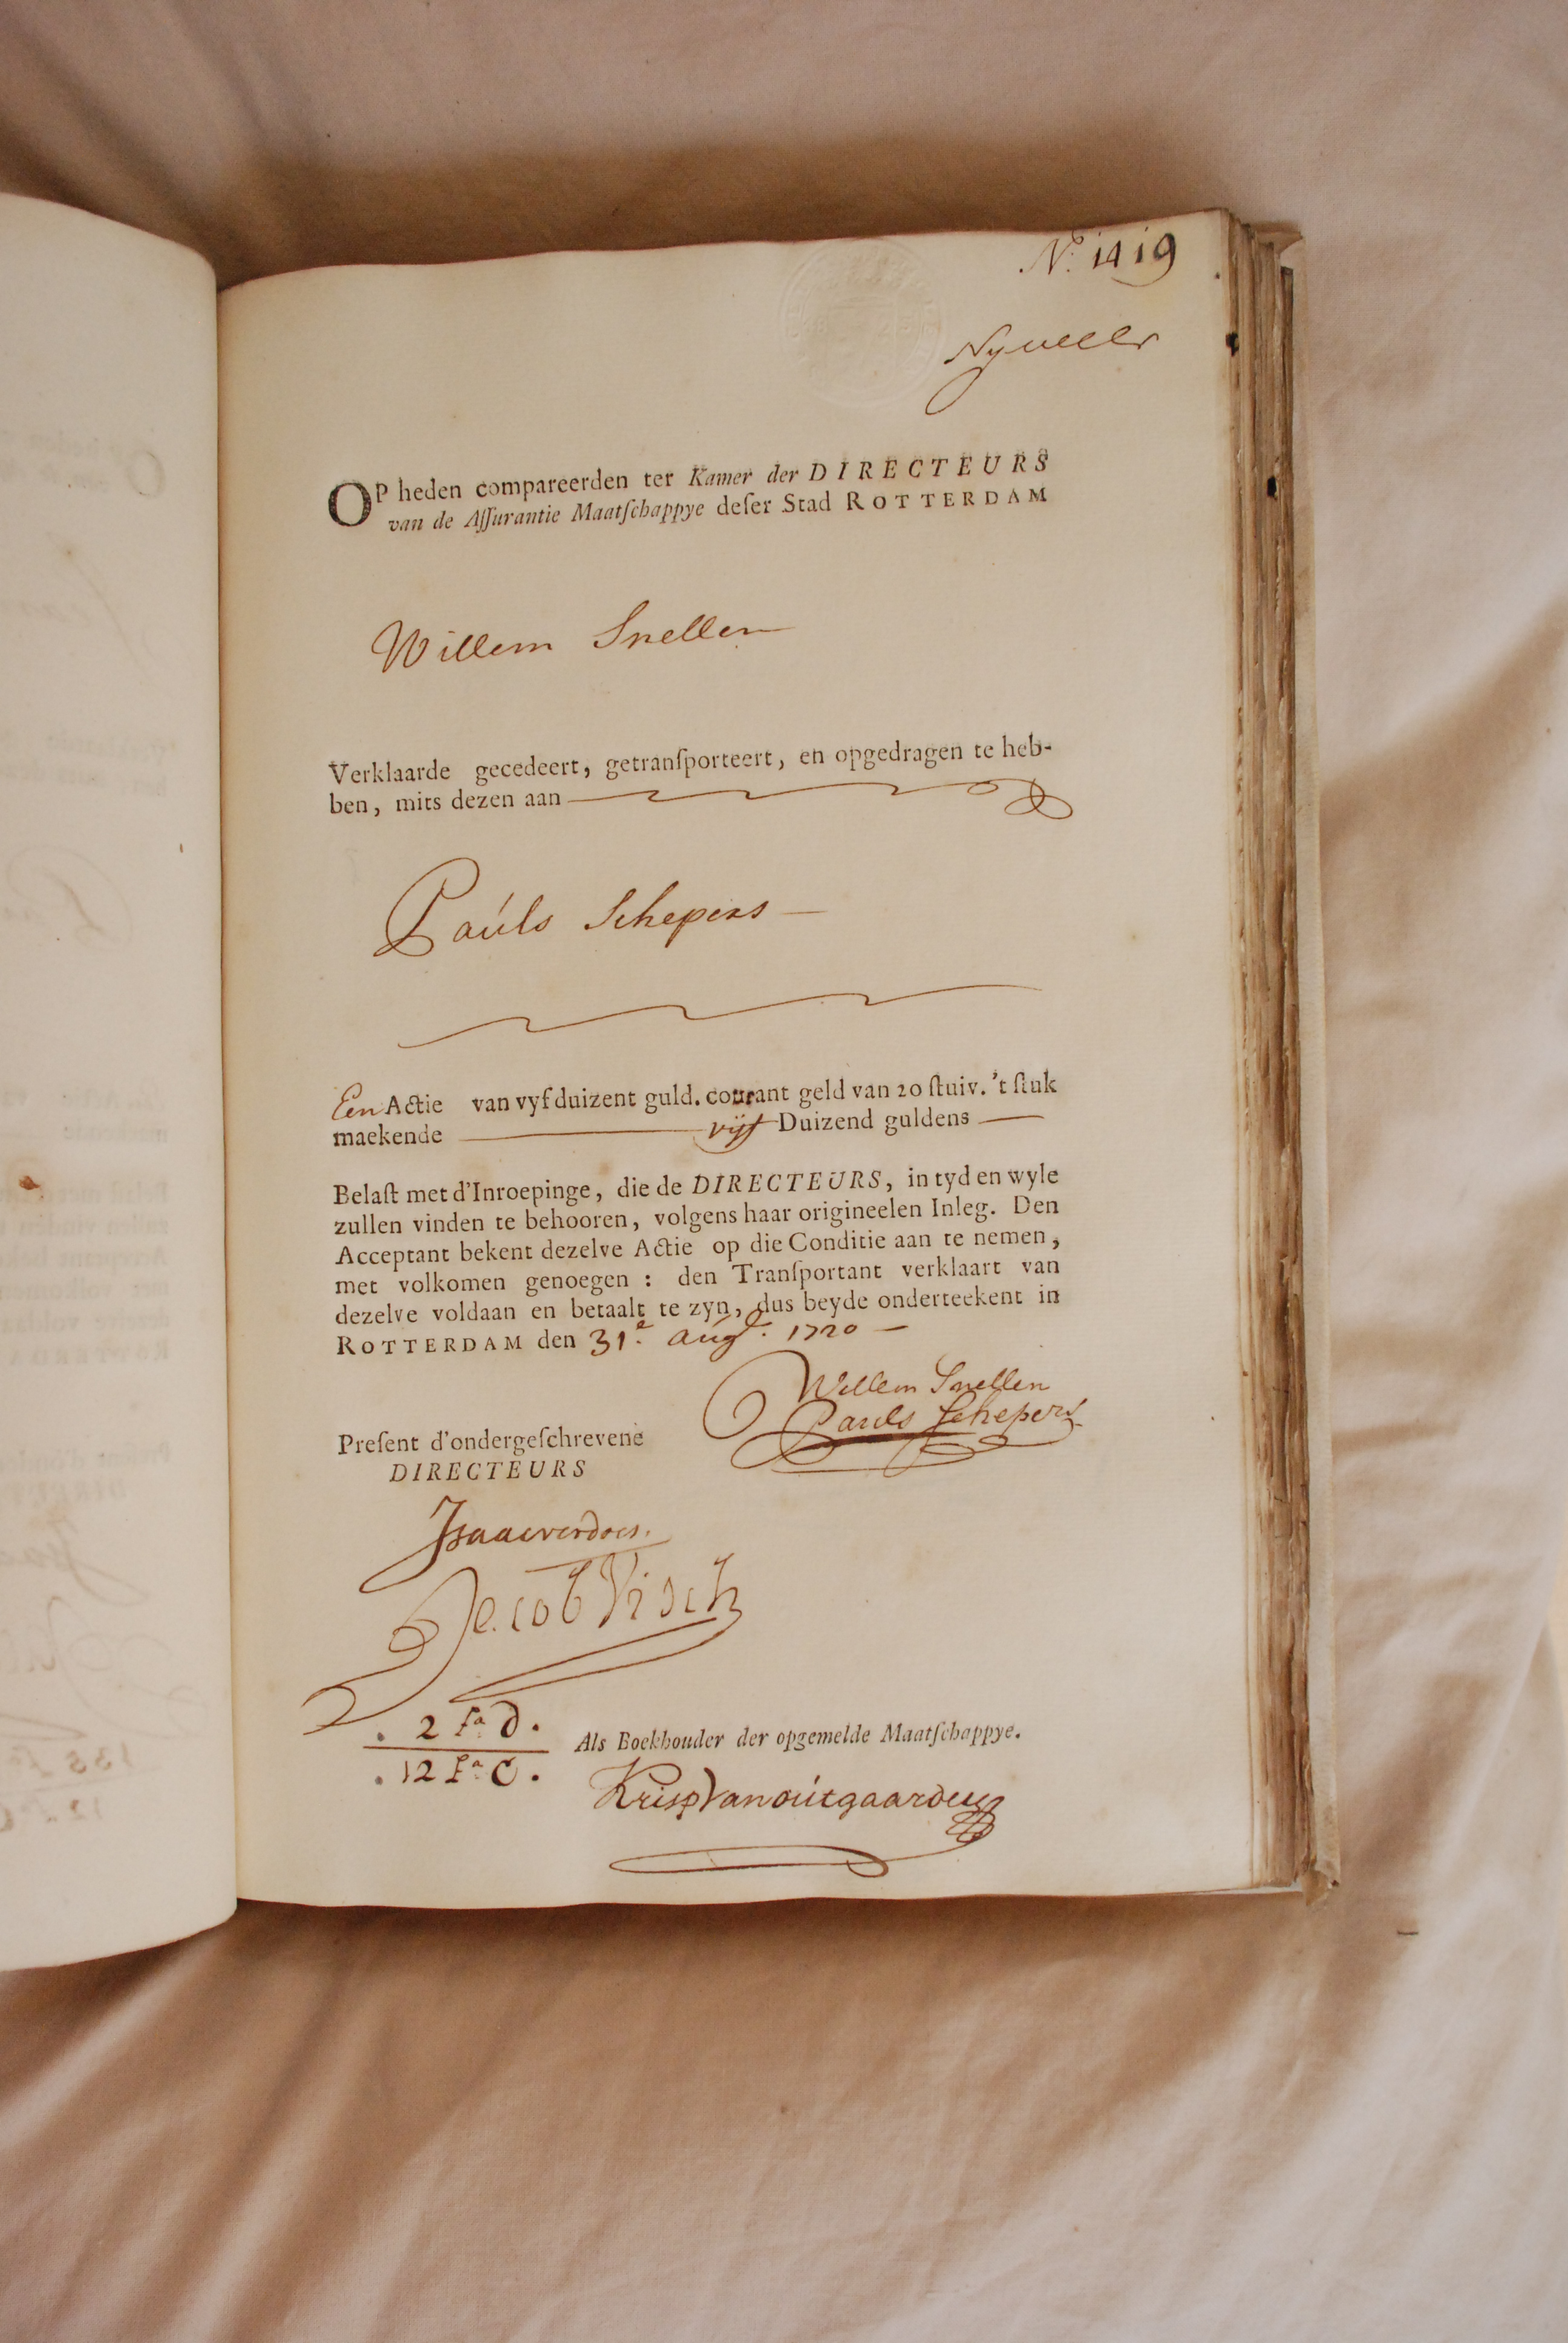 No. 1419
Nyveelt
OP heden compareerden ter Kamer der DIRECTEURS
van de Aſſurantie Maatſchappye deſer Stad ROTTERDAM
Willem Snellen
Verklaarde gecedeert, getranſporteert, en opgedragen te heb-
ben, mits dezen aan
Pauls Schepers
Een Actie van vyf duizent guld. courant geld van 20 ſtuiv. 't ſtuk
maekende vijf Duizend guldens
Belaſt met d'Inroepinge, die de DIRECTEURS, in tyd en wyle
zullen vinden te behooren, volgens haar origineelen Inleg. Den
Acceptant bekent dezelve Actie op die Conditie aan te nemen,
met volkomen genoegen : den Tranſportant verklaart van
dezelve voldaan en betaalt te zyn, dus beyde onderteekent in
ROTTERDAM den 31e. augt. 1720
Willem Snellen
Pauls Schepers
Preſent d'ondergeſchrevene
DIRECTEURS
Isaac verdoes.
Jacob Visch
. 2 fa D.
. 12 fa C.
Als Boekhouder der opgemelde Maatſchappye.
Krisp Van outgaarden